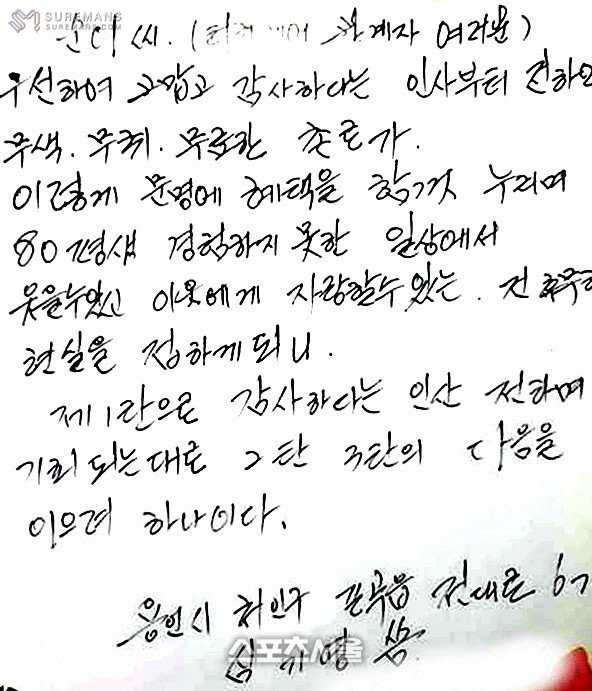 SUREMANS
SUREMANS.COM
씨. ( 관계자 여러분)
우선하여 고맙고 감사하다는 인사부터 전하오
무색. 무취. 무료한 촌로가.
이렇게 문명에 혜택을 한껏 누리며
80평생 경험하지 못한 일상에서
웃을수있고 이웃에게 자랑할수 있는. 전후무
현실을 접하게되니.
제1탄으로 감사하다는 인산 전하며
기회 되는대로 2탄 3탄의 다음을
이으려 하나이다.
용인시 처인구 포곡읍 전대로
심기영
스포츠서울